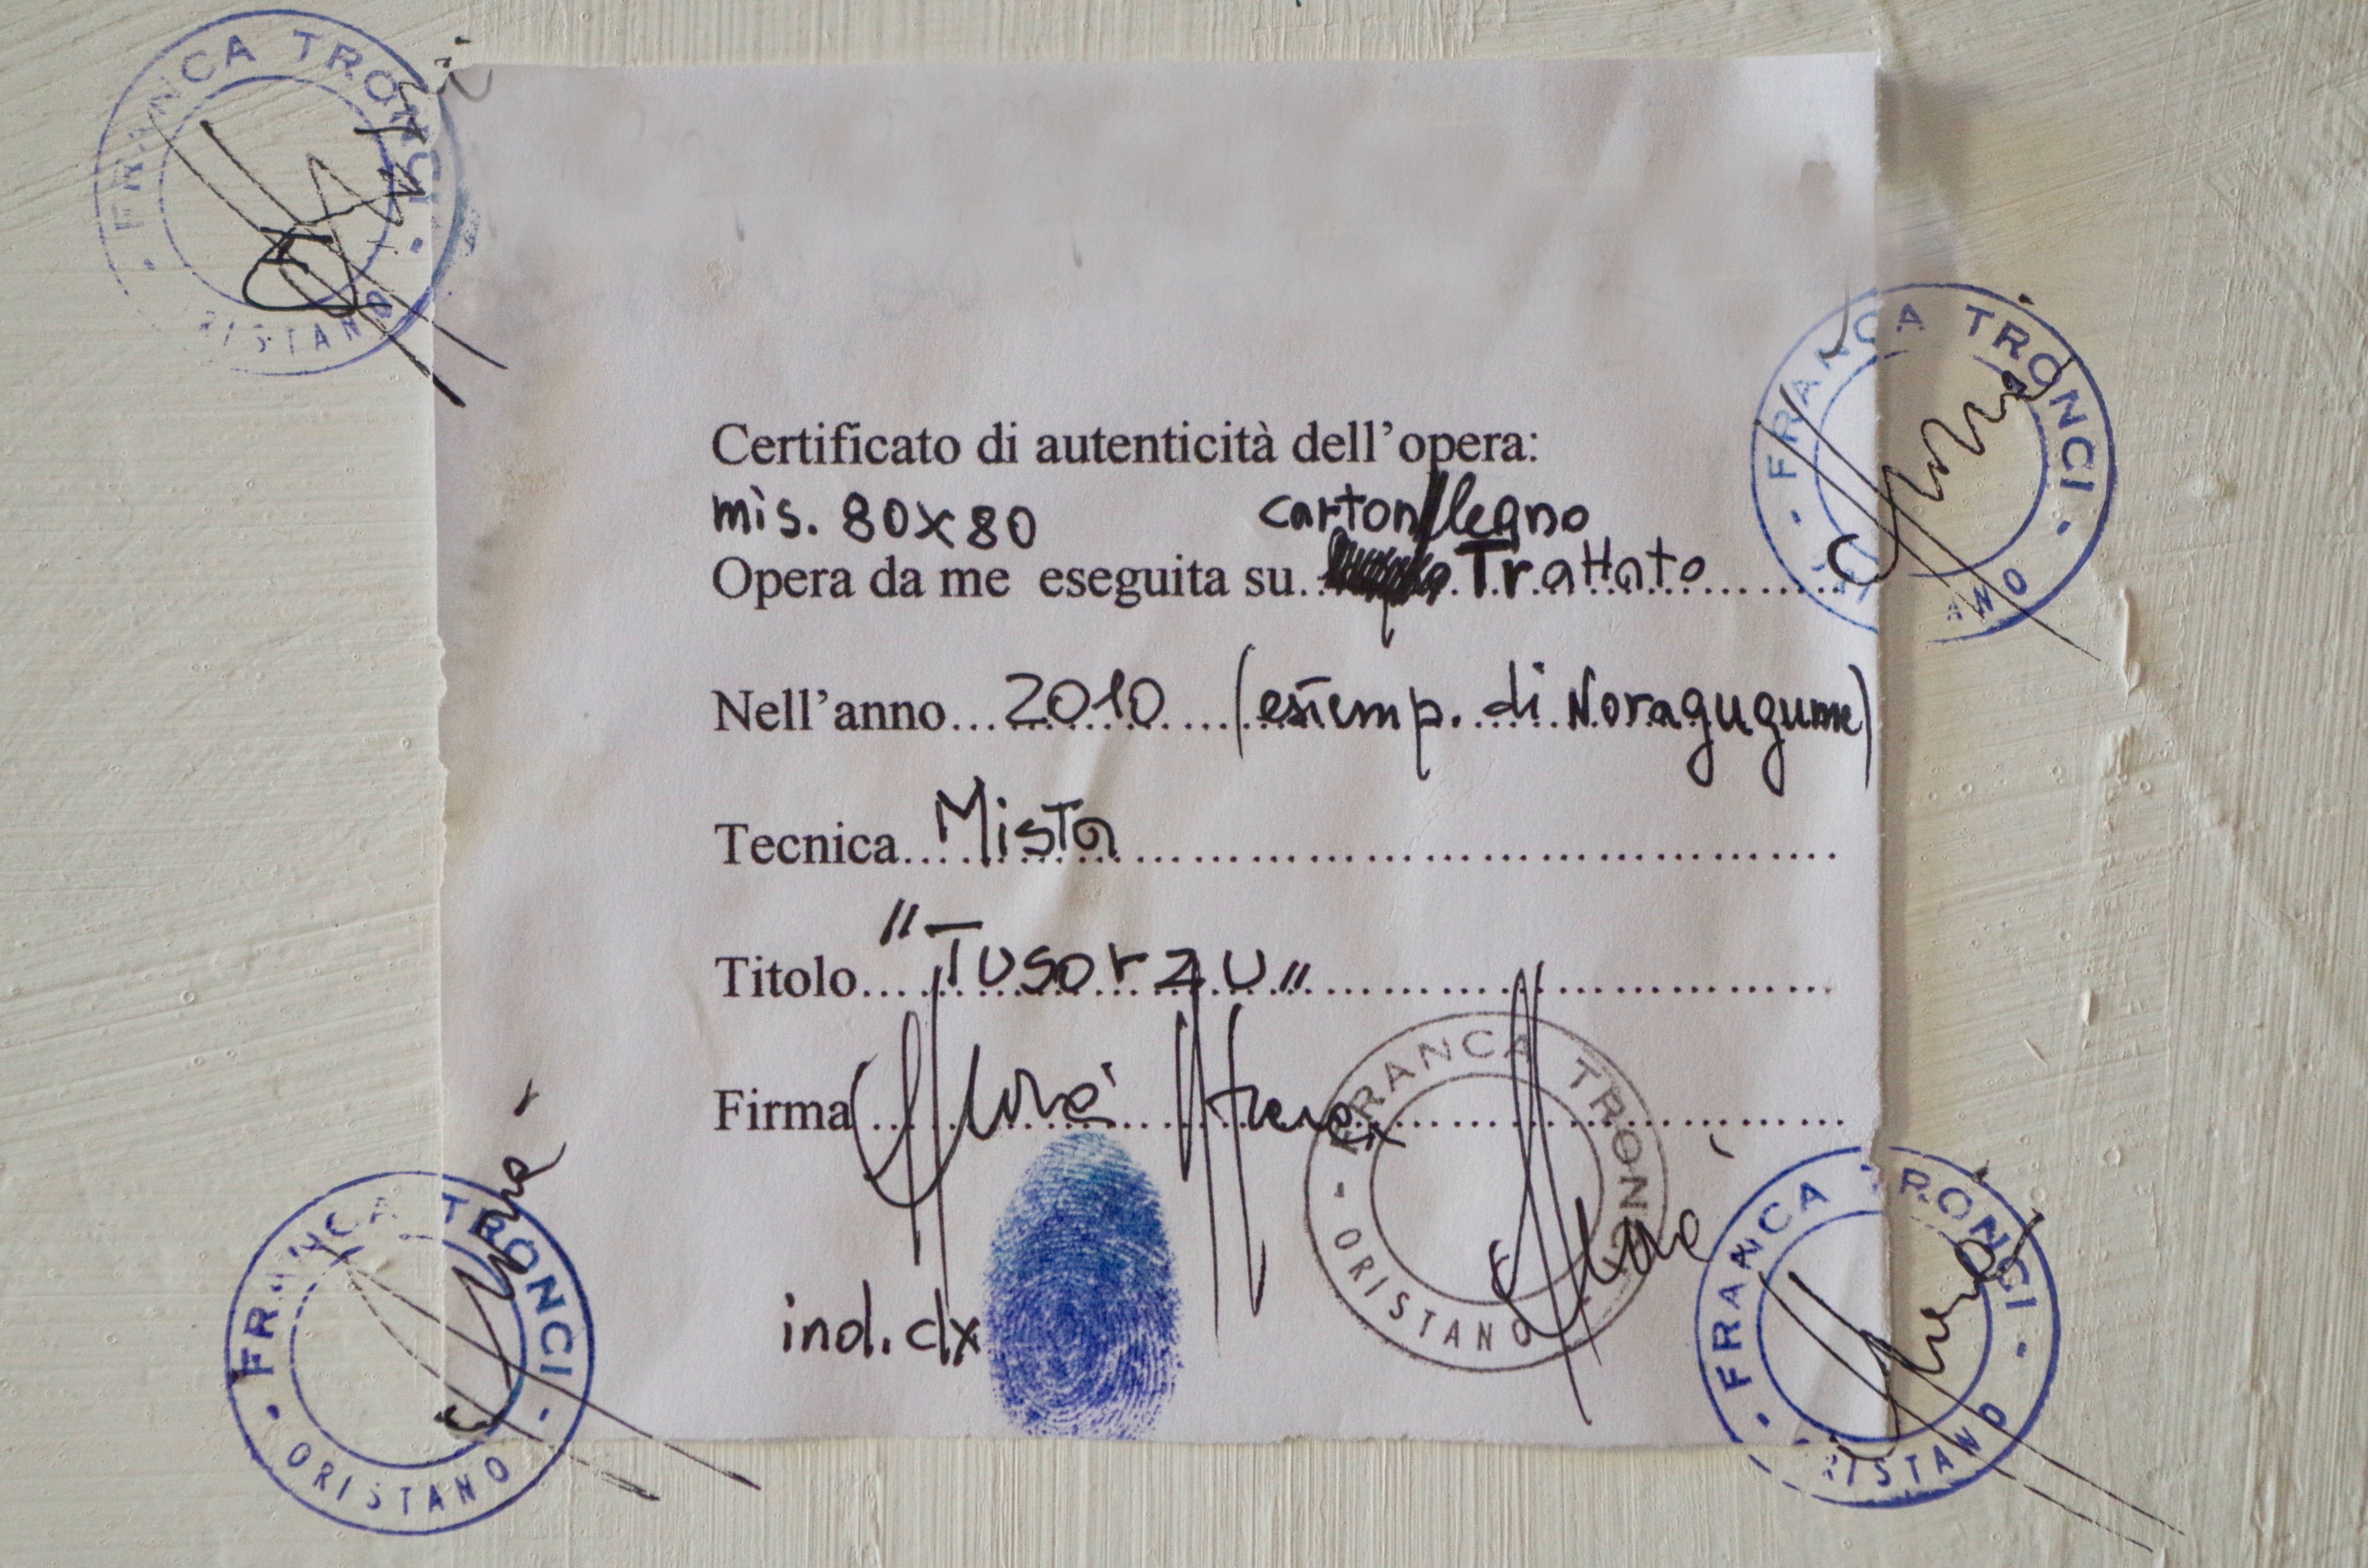 FRANCA TRONCI
ORISTANO
FRANCA TRONCI
Certificato di autenticità dell'opera:
mis. 80x80 carton/legno
Opera da me eseguita su Trattato
Nell'anno 2010 (estemp. di Noragugume)
Tecnica Mista
Titolo "Tusorzu"
Firma
FRANCA TRONCI
ORISTANO
ind. dx
FRANCA TRONCI
ORISTANO
FRANCA TRONCI
ORISTANO